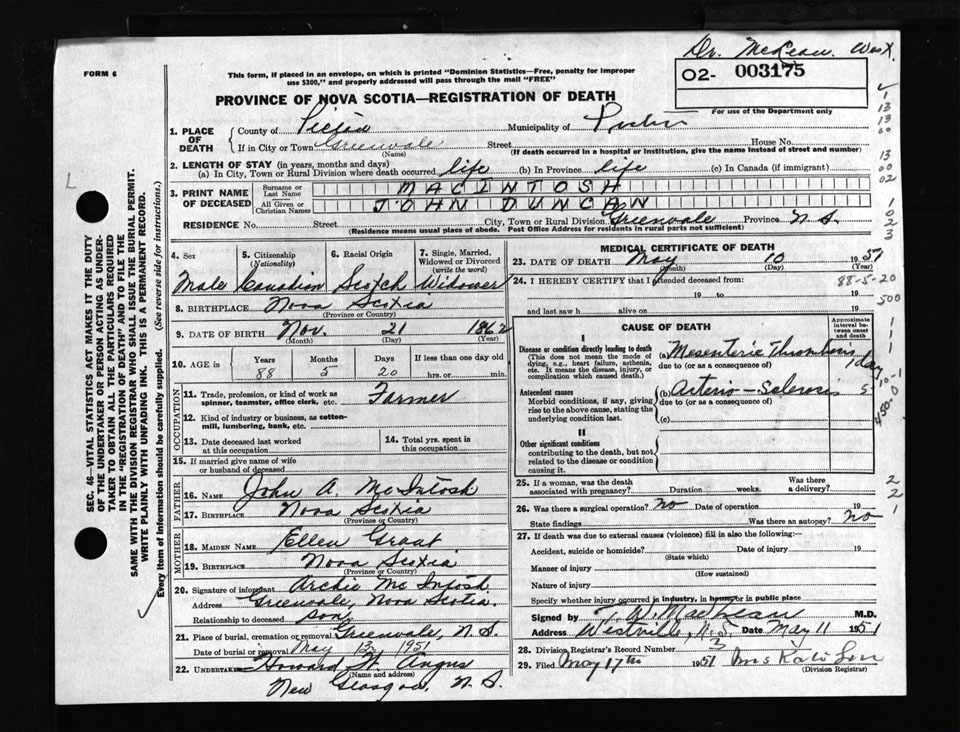 Dr. McLean. West.
FORM 6
This form, if placed in an envelope, on which is printed "Dominion Statistics—Free, penalty for improper
use $300," and properly addressed will pass through the mail "FREE"
O2- 003175
For use of the Department only
PROVINCE OF NOVA SCOTIA—REGISTRATION OF DEATH
1. PLACE OF DEATH
County of Pictou Municipality of Pictou
If in City or Town Greenvale Street House No.
(Name) (If death occurred in a hospital or institution, give the name instead of street and number)
2. LENGTH OF STAY (in years, months and days)
(a) In City, Town or Rural Division where death occurred life (b) In Province life (c) In Canada (if immigrant)
3. PRINT NAME OF DECEASED
Surname or Last Name MACINTOSH
All Given or Christian Names JOHN DUNCAN
RESIDENCE No. Street City, Town or Rural Division Greenvale Province N.S.
(Residence means usual place of abode. Post Office Address for residents in rural parts not sufficient)
4. Sex 5. Citizenship (Nationality) 6. Racial Origin 7. Single, Married, Widowed or Divorced (write the word)
Male Canadian Scotch Widower
8. BIRTHPLACE Nova Scotia
(Province or Country)
9. DATE OF BIRTH Nov. 21 1862
(Month) (Day) (Year)
10. AGE in Years Months Days If less than one day old
88 5 20 hrs. or min.
OCCUPATION
11. Trade, profession, or kind of work as spinner, teamster, office clerk, etc. Farmer
12. Kind of industry or business, as cotton-mill, lumbering, bank, etc.
13. Date deceased last worked at this occupation 14. Total yrs. spent in this occupation
15. If married give name of wife or husband of deceased
FATHER
16. Name John A. McIntosh
17. Birthplace Nova Scotia
(Province or Country)
MOTHER
18. Maiden Name Ellen Grant
19. Birthplace Nova Scotia
(Province or Country)
20. Signature of informant Archie McIntosh
Address Greenvale, Nova Scotia.
Relationship to deceased son
21. Place of burial, cremation or removal Greenvale, N.S.
Date of burial or removal May 13, 1951
22. Undertaker Howard W. Angus
(Name and address)
New Glasgow, N.S.
MEDICAL CERTIFICATE OF DEATH
23. DATE OF DEATH May 10 1951
(Month) (Day) (Year)
24. I HEREBY CERTIFY that I attended deceased from:
88-5-20
19 to 19
and last saw h alive on 19
500
CAUSE OF DEATH
Approximate interval between onset and death
I
Disease or condition directly leading to death
(This does not mean the mode of dying, e.g., heart failure, asthenia, etc. It means the disease, injury, or complication which caused death.)
(a) Mesenteric Thrombosis 1 day
due to (or as a consequence of)
Antecedent causes
Morbid conditions, if any, giving rise to the above cause, stating the underlying condition last.
(b) Arterio-Sclerosis 5
due to (or as a consequence of)
(c)
II
Other significant conditions
contributing to the death, but not related to the disease or condition causing it.
25. If a woman, was the death associated with pregnancy? Duration weeks. Was there a delivery?
26. Was there a surgical operation? no Date of operation 19
State findings Was there an autopsy? No
27. If death was due to external causes (violence) fill in also the following:—
Accident, suicide or homicide? Date of injury 19
(State which)
Manner of injury
(How sustained)
Nature of injury
Specify whether injury occurred in industry, in home, or in public place
Signed by T. W. MacLean M.D.
Address Westville, N.S. Date May 11 1951
28. Division Registrar's Record Number 3
29. Filed May 17th 1951
(Division Registrar)
SEC. 46—VITAL STATISTICS ACT MAKES IT THE DUTY
OF THE UNDERTAKER OR PERSON ACTING AS UNDER-
TAKER TO OBTAIN ALL THE PARTICULARS REQUIRED
IN THE "REGISTRATION OF DEATH" AND TO FILE THE
SAME WITH THE DIVISION REGISTRAR WHO SHALL ISSUE THE BURIAL PERMIT.
WRITE PLAINLY WITH UNFADING INK. THIS IS A PERMANENT RECORD.
Every item of information should be carefully supplied. (See reverse side for instructions.)